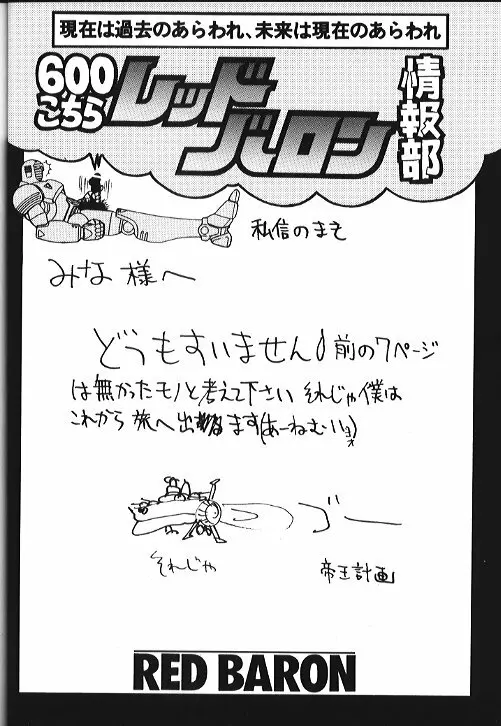 現在は過去のあらわれ、未来は現在のあらわれ
600
こちら
レッド
バロン
情報部
私信のまき
みな様へ
どうもすいません 前の7ページ
は無かったモノと考えて下さい それじゃ僕は
これから旅へ出ます(あーねむいよォ)
ゴー
それじゃ
帝王計画
RED BARON